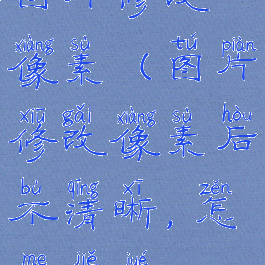 xiàng sù tú piàn
像素（图片
xiū gǎi xiàng sù hòu
修改像素后
bù qīng xī zěn
不清晰，怎
me jiě jué